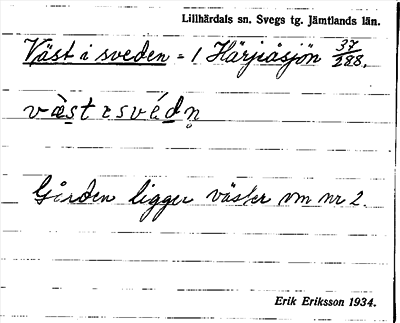 Lillhärdals sn. Svegs tg. Jämtlands län.
Väst i sveden = 1 Härjeåsjön 37/288.
væst ɪ svédn̥
Gården ligger väster om nr 2.
Erik Eriksson 1934.